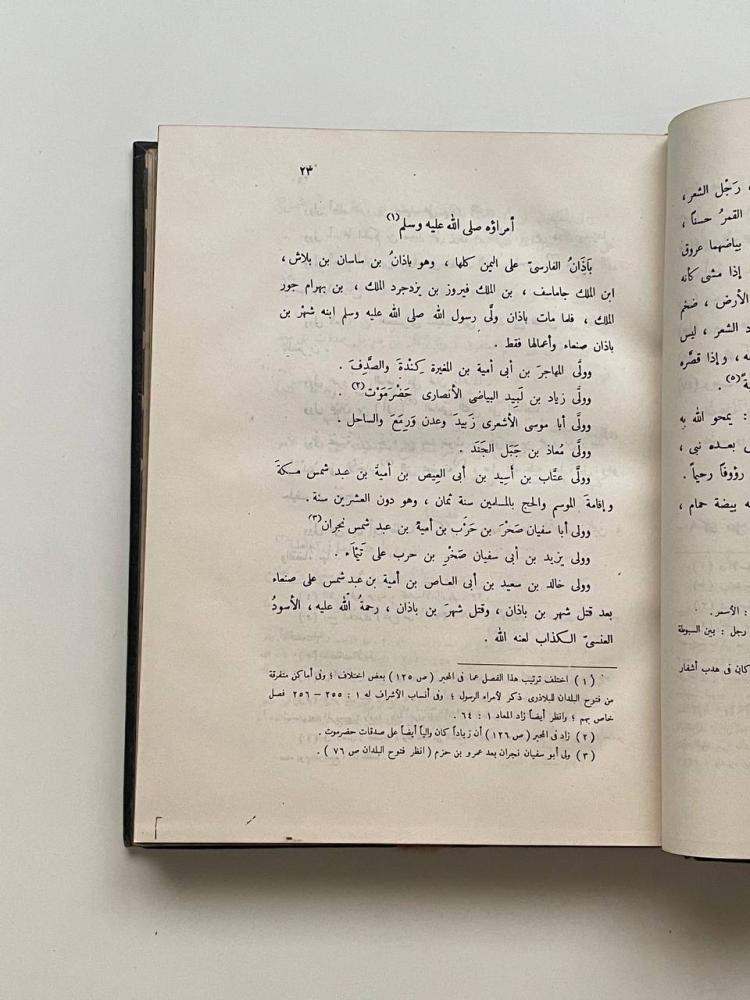 ، رَجْل الشعر،
القمرُ حسناً ،
بياضهما عروق
إذا مشى كأنه
الأرض ، ضخم
د الشعر ، ليس
ـه ، وإذا قصَّره
ةٌ (٥) .
: يمحو الله به
ى بعده نبى ،
رؤوفاً رحيماً .
ـه بيضة حمام ،
: الأسمر .
رجل : بين السبوطة
كان فى هدب أشفار
٢٣
أمراؤه صلى الله عليه وسلم (١)
بَاذَانُ الفارسىّ على اليمن كلها ، وهو باذانُ بن ساسان بن بلاش ،
ابن الملك جاماسف ، بن الملك فيروز بن يزدجرد الملك ، بن بهرام جور
الملك ، فلما مات باذان ولَّى رسول الله صلى الله عليه وسلم ابنه شهْر بن
باذان صنعاء وأعمالها فقط .
وولَّى المهاجرَ بن أبى أمية بن المغيرة كِنْدَةَ والصَّدِفَ .
وولَّى زياد بن لَبِيد البياضى الأنصارى حَضْرَمَوْت (٢) .
وولَّى أبا موسى الأشعرى زَبِيدَ وعدن وَرِمَعَ والساحل .
وولَّى مُعاذ بن جَبَل الجَنَد .
وولَّى عتَّاب بن أَسِيد بن أبى العِيص بن أمية بن عبد شمس مكة
وإقامة الموسم والحج بالمسلمين سنة ثمان ، وهو دون العشرين سنة .
وولى أبا سفيان صَخْرَ بن حَرْب بن أمية بن عبد شمس نجران (٣)
وولى يزيد بن أبى سفيان صَخْرِ بن حرب على تَيْمَاء .
وولى خالد بن سعيد بن أبى العاص بن أمية بن عبد شمس على صنعاء
بعد قتل شهر بن باذان ، وقتل شهرَ بن باذان ، رحمةُ الله عليه ، الأسودُ
العنسىّ الكذاب لعنه الله .
(١) اختلف ترتيب هذا الفصل عما فى المحبر (ص ١٢٥) بعض اختلاف ؛ وفى أماكن متفرقة
من فتوح البلدان للبلاذرى ذكر لأمراء الرسول ؛ وفى أنساب الأشراف له ١ : ٢٥٥ – ٢٥٦ فصل
خاص بهم ؛ وانظر أيضاً زاد المعاد ١ : ٦٤ .
(٢) زاد فى المحبر (ص ١٢٦) أن زياداً كان والياً أيضاً على صدقات حضرموت .
(٣) ولى أبو سفيان نجران بعد عمرو بن حزم (انظر فتوح البلدان ص ٧٦) .